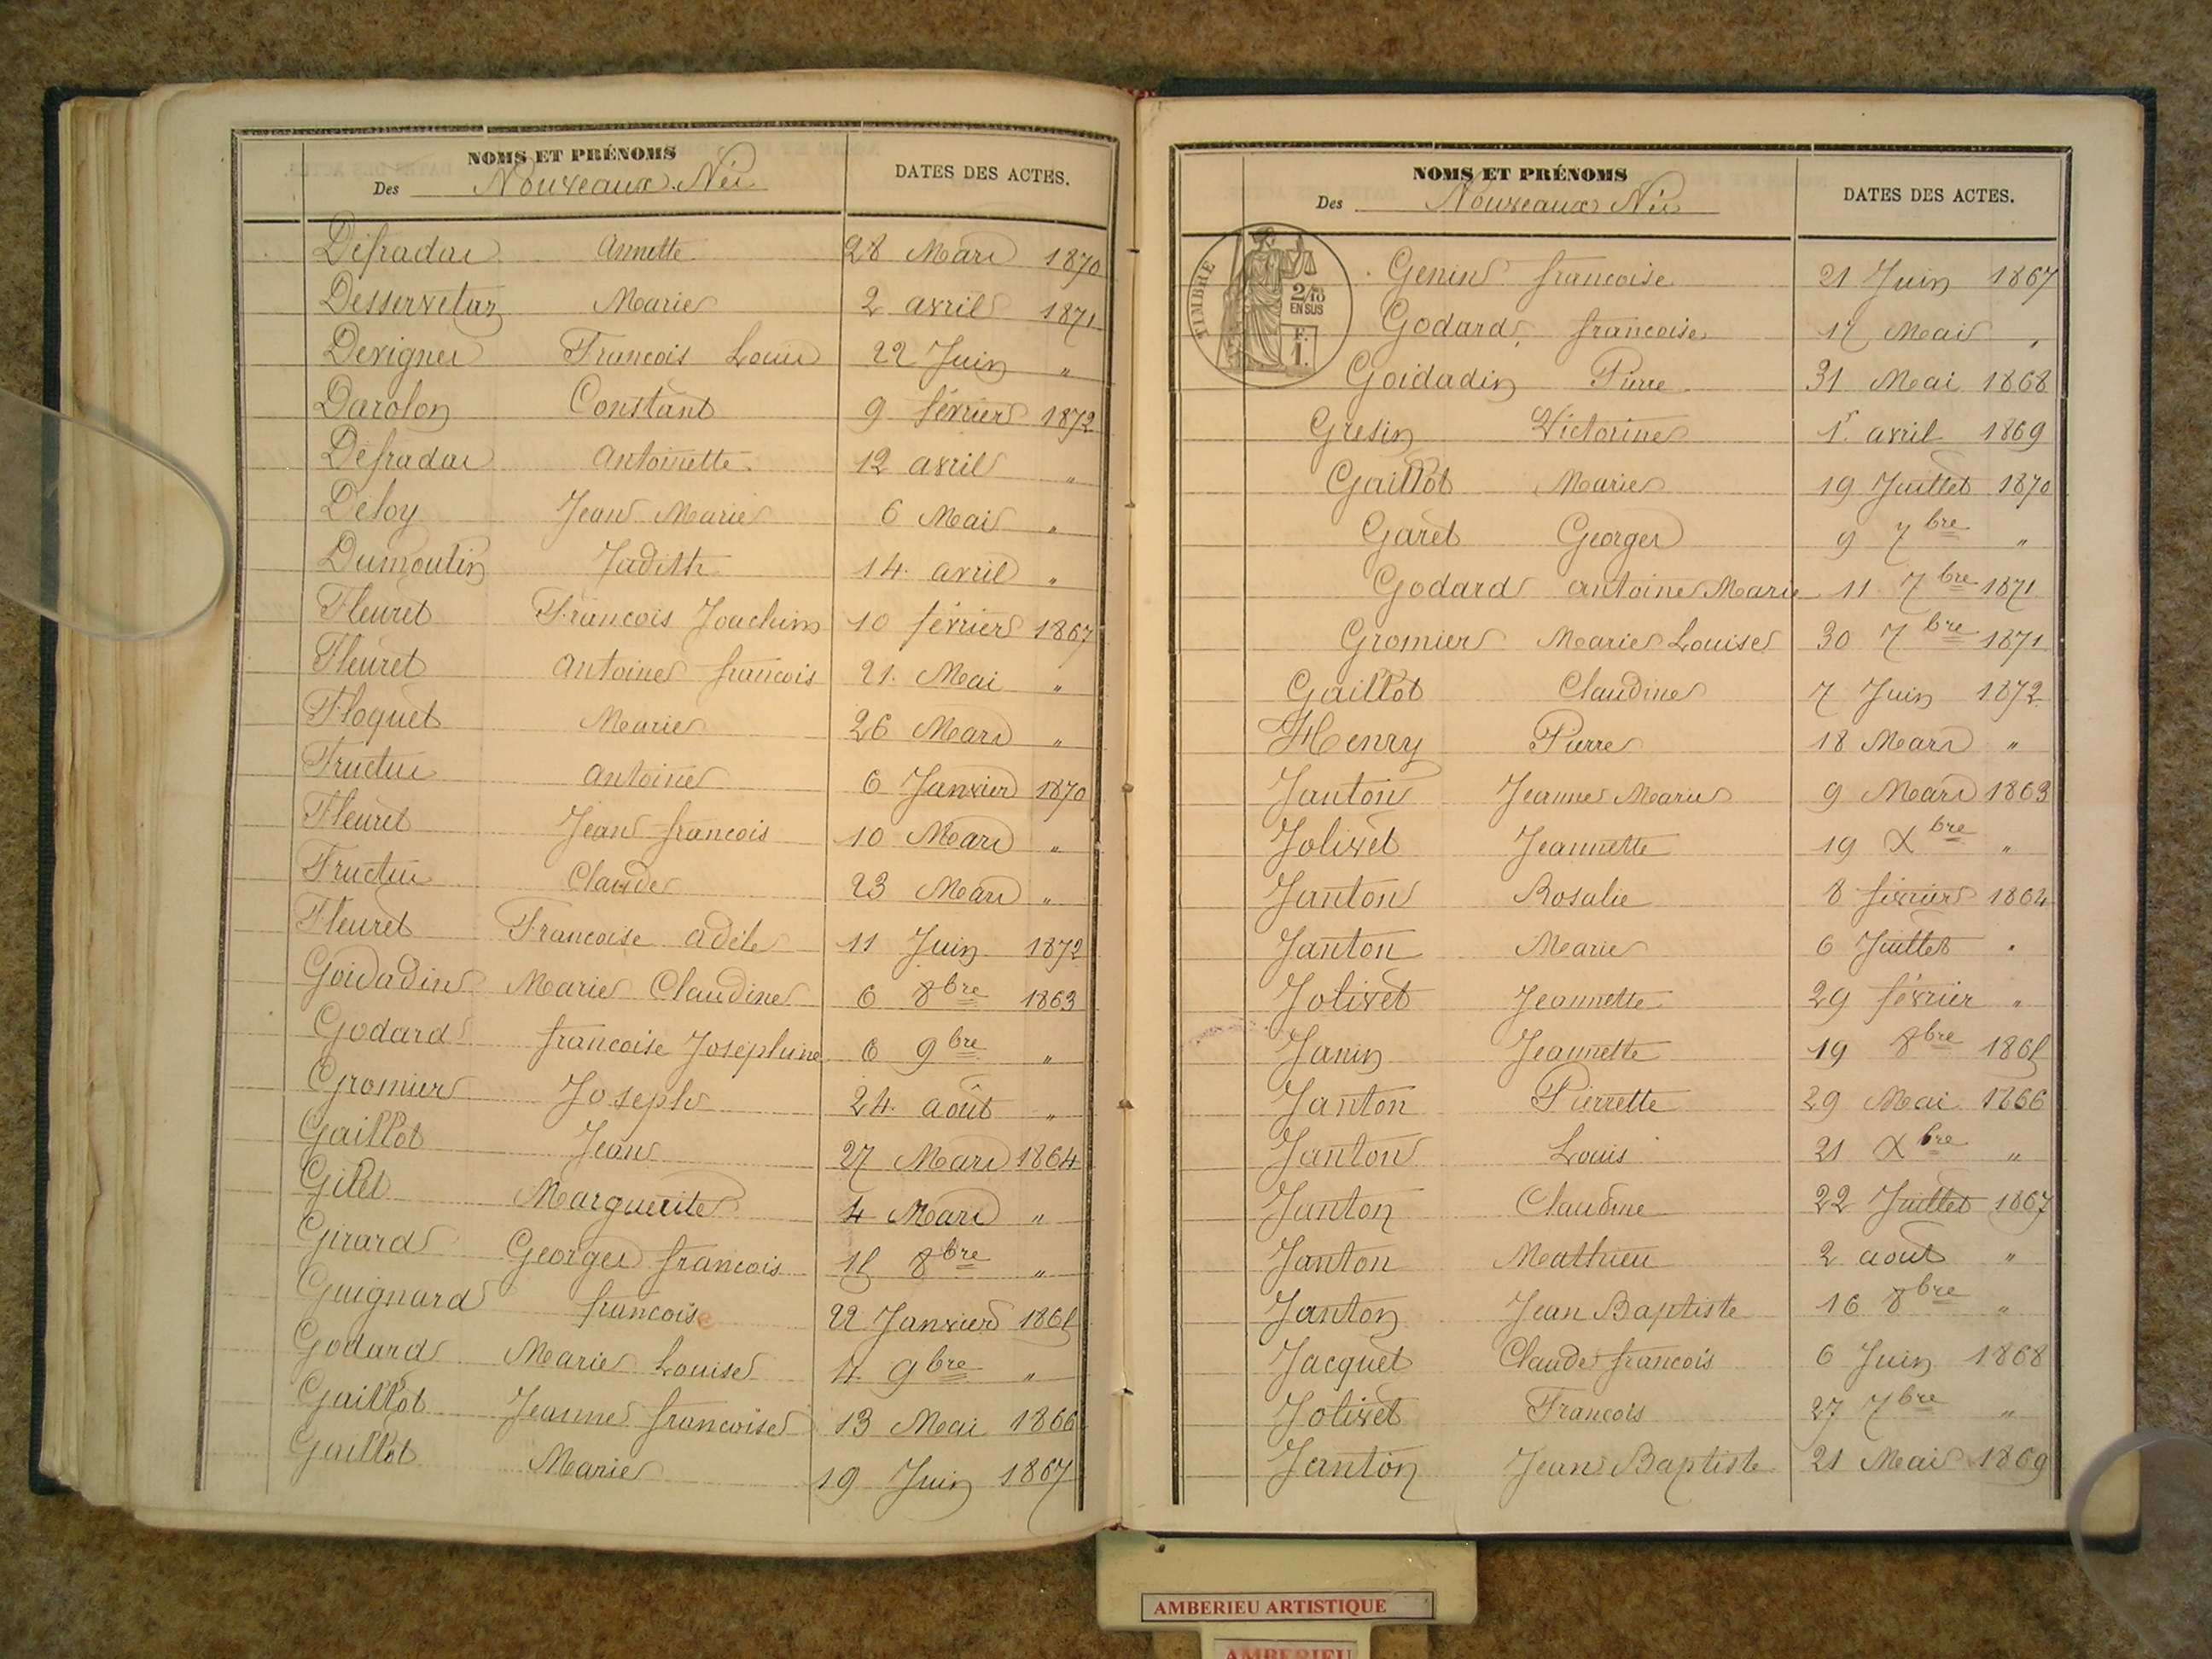 NOMS ET PRÉNOMS
Des Nouveaux Nés
DATES DES ACTES.
Défradas Annette 28 Mars 1870
Desservetaz Marie 2 avril 1871
Devignes François Louis 22 Juin "
Darolon Constant 9 février 1872
Défradas Antoinette 12 avril "
Déloy Jean Marie 6 Mai "
Dumoulin Judith 14 avril "
Fleuret François Joachim 10 février 1867
Fleuret Antoine françois 21 Mai "
Floquet Marie 26 Mars "
Fructus Antoine 6 Janvier 1870
Fleuret Jean françois 10 Mars "
Fructus Claude 23 Mars "
Fleuret Françoise adèle 11 Juin 1872
Goidadin Marie Claudine 6 8bre 1863
Godard françoise Joséphine 6 9bre "
Gromier Joseph 24 août "
Gaillot Jean 27 Mars 1864
Gilet Marguerite 4 Mars "
Girard Georges françois 15 8bre "
Guignard françoise 22 Janvier 1865
Godard Marie Louise 4 9bre "
Gaillot Jeanne françoise 13 Mai 1866
Gaillot Marie 19 Juin 1867
NOMS ET PRÉNOMS
Des Nouveaux Nés
DATES DES ACTES.
TIMBRE
2/10
EN SUS
F.
1.
Genin françoise 21 Juin 1867
Godard françoise 17 Mai "
Goidadin Pierre 31 Mai 1868
Gresin Victorine 1r avril 1869
Gaillot Marie 19 Juillet 1870
Garet Georges 9 7bre "
Godard antoine Marie 11 7bre 1871
Gromier Marie Louise 30 7bre 1871
Gaillot Claudine 7 Juin 1872
Henry Pierre 18 Mars "
Janton Jeanne Marie 9 Mars 1863
Jolivet Jeannette 19 Xbre "
Janton Rosalie 8 février 1864
Janton Marie 6 Juillet "
Jolivet Jeannette 29 février "
Janin Jeannette 19 8bre 1865
Janton Pierrette 29 Mai 1866
Janton Louis 21 Xbre "
Janton Claudine 22 Juillet 1867
Janton Mathieu 2 août "
Janton Jean Baptiste 16 8bre "
Jacquet Claude françois 6 Juin 1868
Jolivet François 27 7bre "
Janton Jean Baptiste 21 Mai 1869
AMBERIEU ARTISTIQUE
AMBERIEU